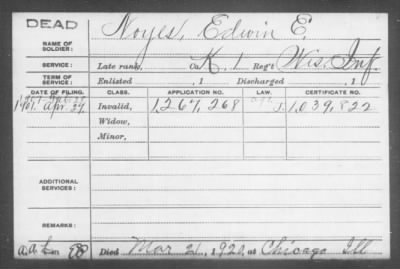 DEAD
NAME OF SOLDIER: Noyes, Edwin E.
SERVICE: Late rank, Co. K, 1 Reg't Wis. Inf.
TERM OF SERVICE: Enlisted , 1 Discharged , 1
DATE OF FILING. CLASS. APPLICATION NO. LAW. CERTIFICATE NO.
1901. Apr. 27 Invalid, 1,267,268 1,039,822
Widow,
Minor,
ADDITIONAL SERVICES:
REMARKS:
Died Mar 21, 1920, at Chicago Ill